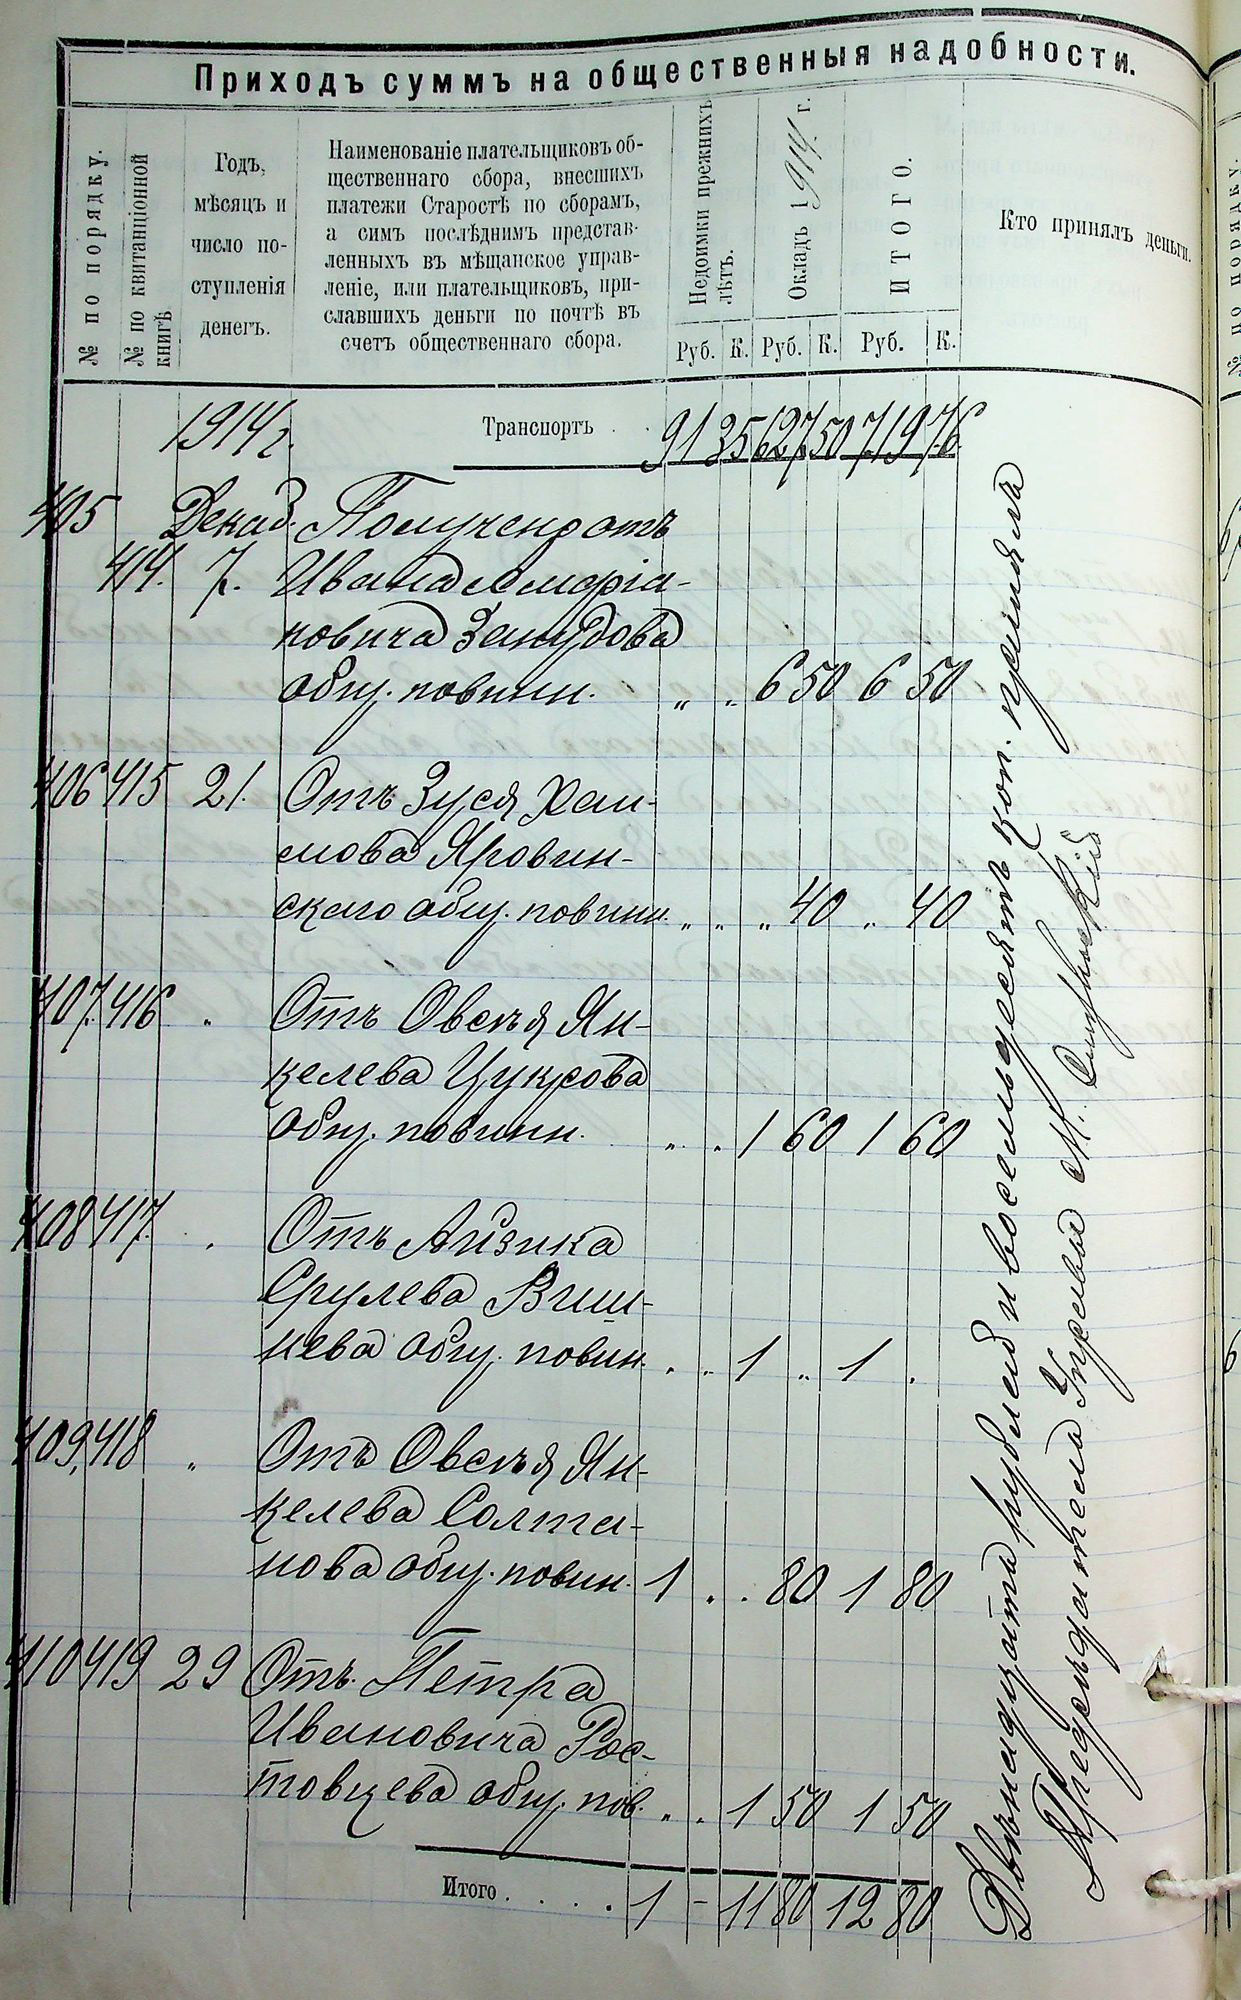 Приходъ суммъ на общественныя надобности.
№ по порядку.
№ по квитанціонной книгѣ
Годъ,
мѣсяцъ и
число по-
ступленія
денегъ.
Наименованіе плательщиковъ об-
щественнаго сбора, внесшихъ
платежи Старостѣ по сборамъ,
а симъ послѣднимъ представ-
ленныхъ въ мѣщанское управ-
леніе, или плательщиковъ, при-
славшихъ деньги по почтѣ въ
счетъ общественнаго сбора.
Недоимки прежнихъ лѣтъ.
Окладъ 1914 г.
ИТОГО.
Кто принялъ деньги.
Руб. К. Руб. К. Руб. К.
1914 г. Транспортъ . . 91 35 627 50 719 76
405 Декаб. Получено отъ
414. 7. Ивана
новича
общ. повинн. „ „ 6 50 6 50
406 415 21. Отъ Зуся Хаи-
мова Яровин-
скаго общ. повинн. „ „ „ 40 „ 40
407. 416 „ Отъ Овсѣя Ян-
келева Цукрова
общ. повинн. „ „ 1 60 1 60
408 417. „ Отъ Айзика
Срулева Виш-
нева общ. повин. „ „ 1 „ 1 „
409. 418 „ Отъ Овсѣя Ян-
келева Солта-
нова общ. повин. 1 „ „ 80 1 80
410 419 29 Отъ Петра
Ивановича Рос-
товцева общ. пов. „ „ 1 50 1 50
Итого . . . . . 1 – 11 80 12 80
Двѣнадцать рублей и восемьдесятъ коп. принялъ
Предсѣдатель Управы М.